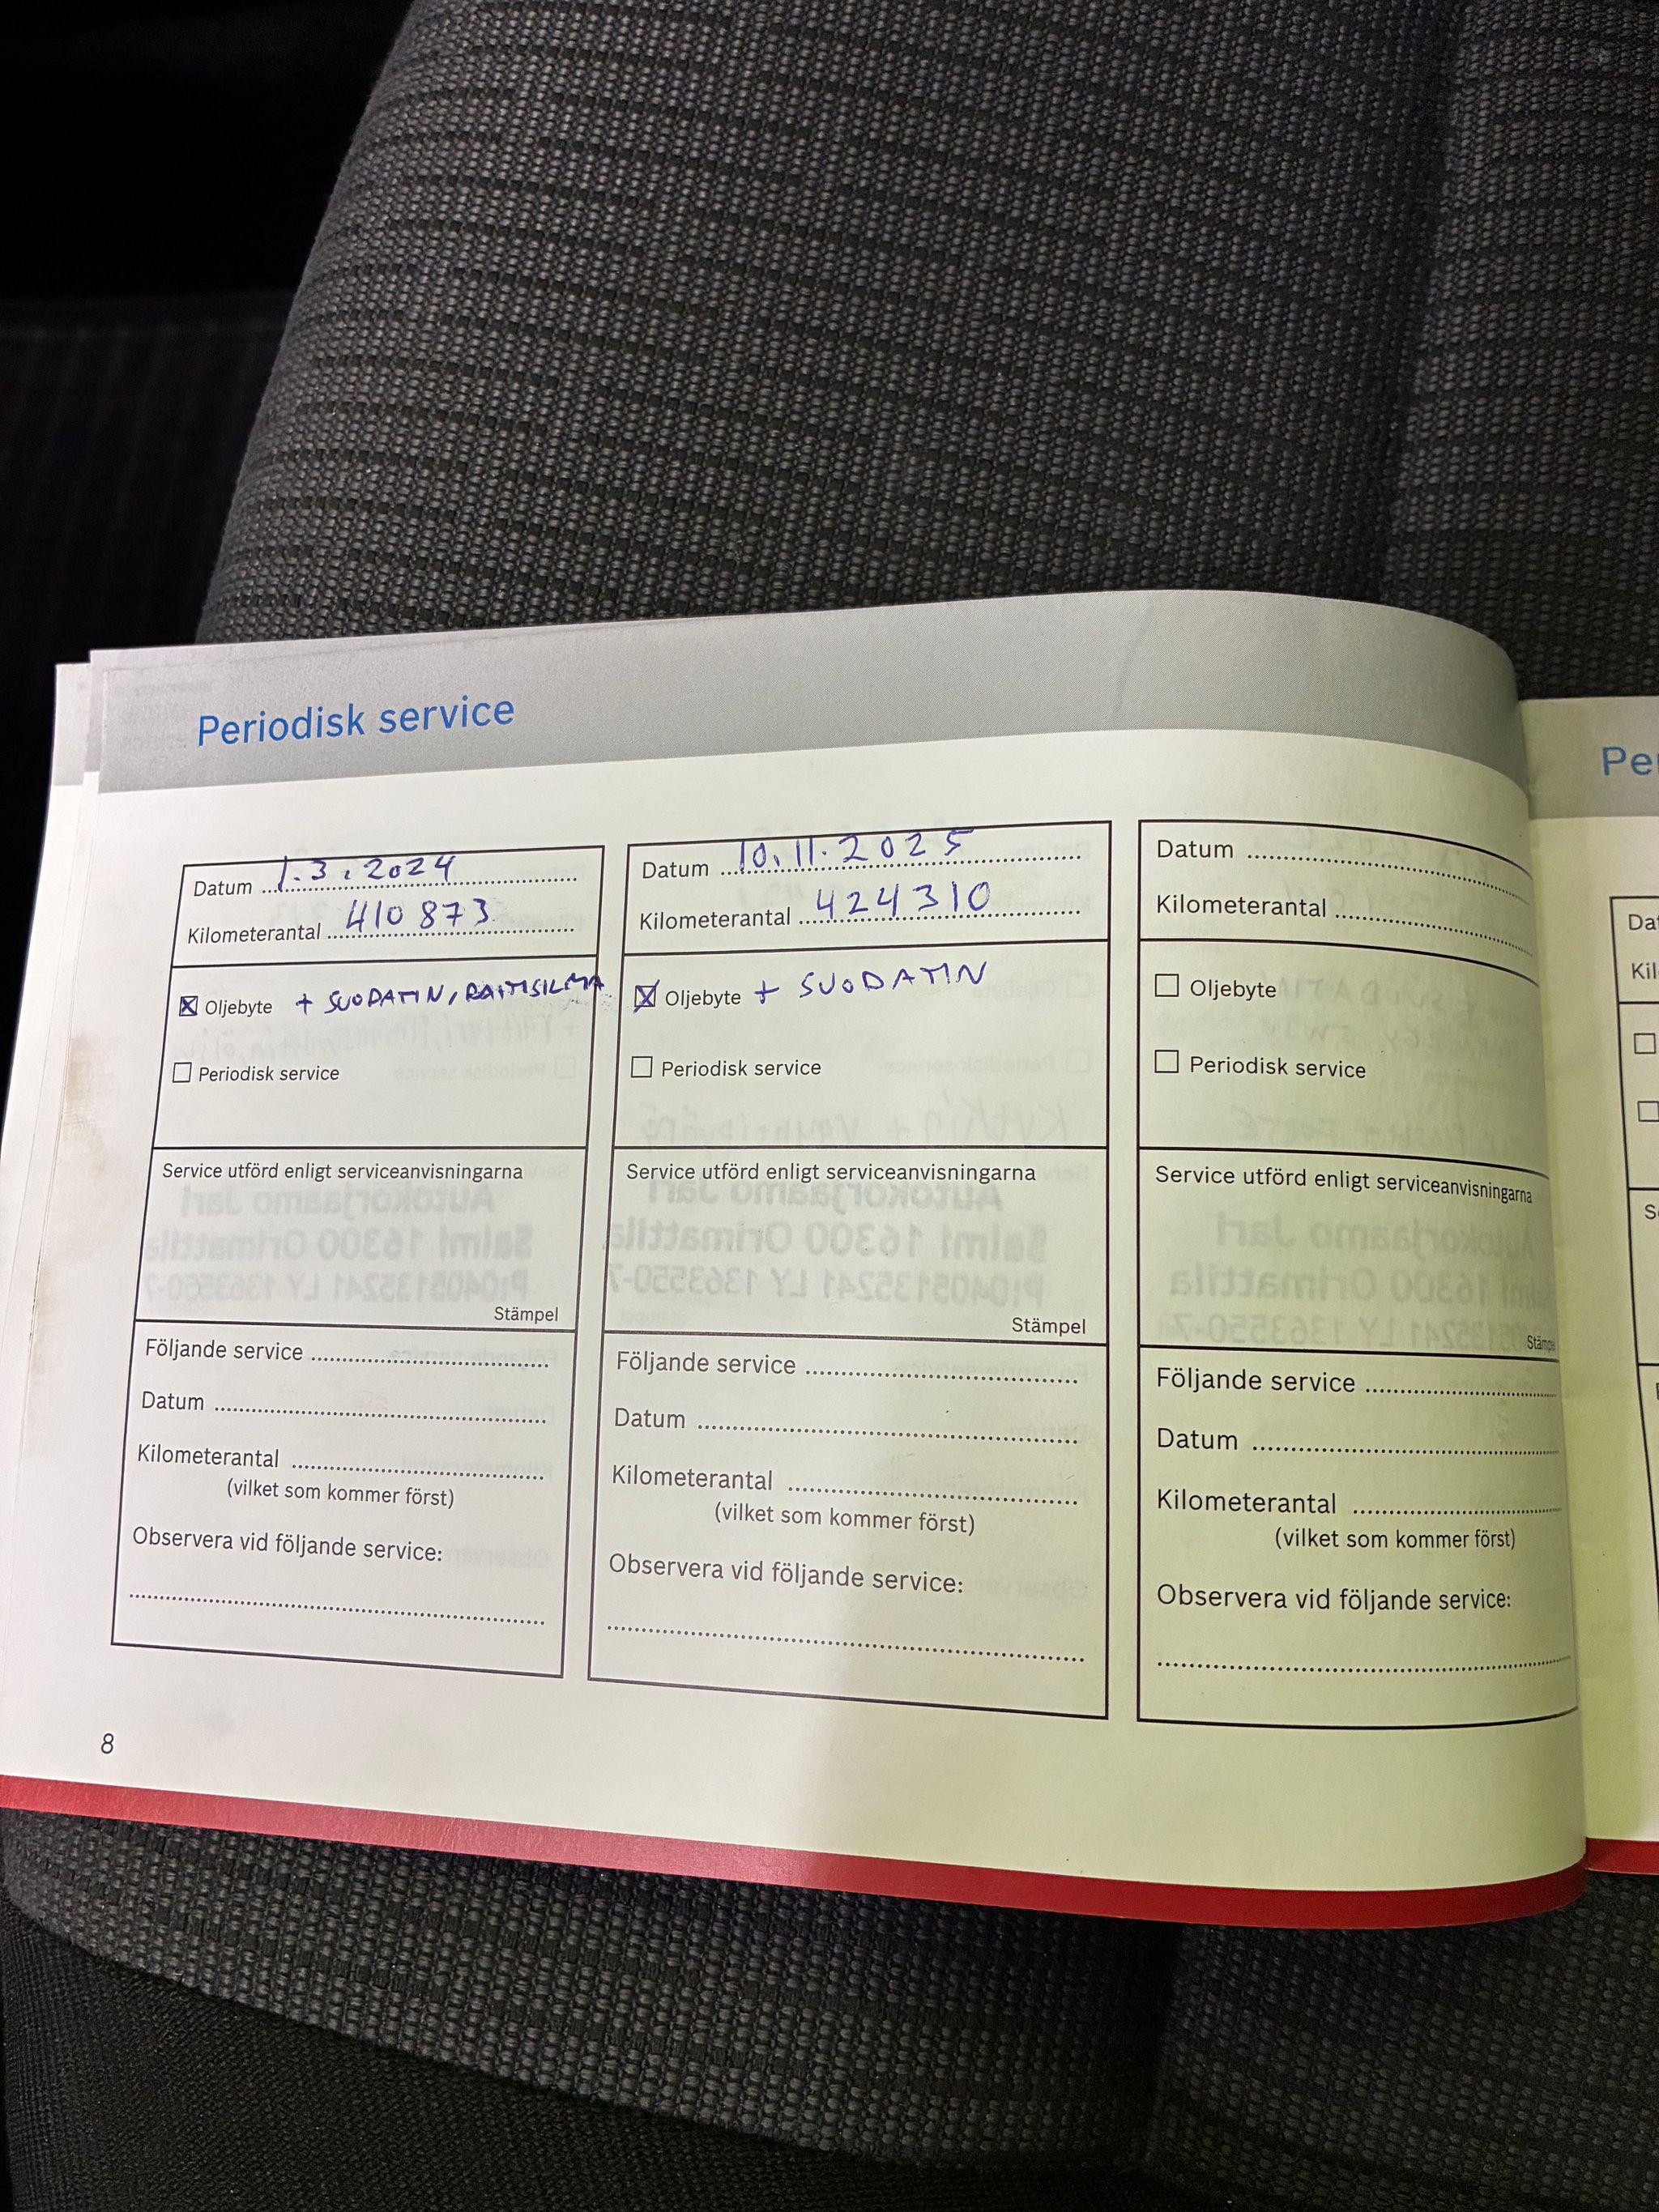 Periodisk service
Datum 1.3.2024
Kilometerantal 410 873
☒ Oljebyte + SUODATIN, RAITISILMA
☐ Periodisk service
Service utförd enligt serviceanvisningarna
Stämpel
Följande service
Datum
Kilometerantal
(vilket som kommer först)
Observera vid följande service:
Datum 10.11.2025
Kilometerantal 424310
☒ Oljebyte + SUODATIN
☐ Periodisk service
Service utförd enligt serviceanvisningarna
Stämpel
Följande service
Datum
Kilometerantal
(vilket som kommer först)
Observera vid följande service:
Datum
Kilometerantal
☐ Oljebyte
☐ Periodisk service
Service utförd enligt serviceanvisningarna
Stämpel
Följande service
Datum
Kilometerantal
(vilket som kommer först)
Observera vid följande service:
8